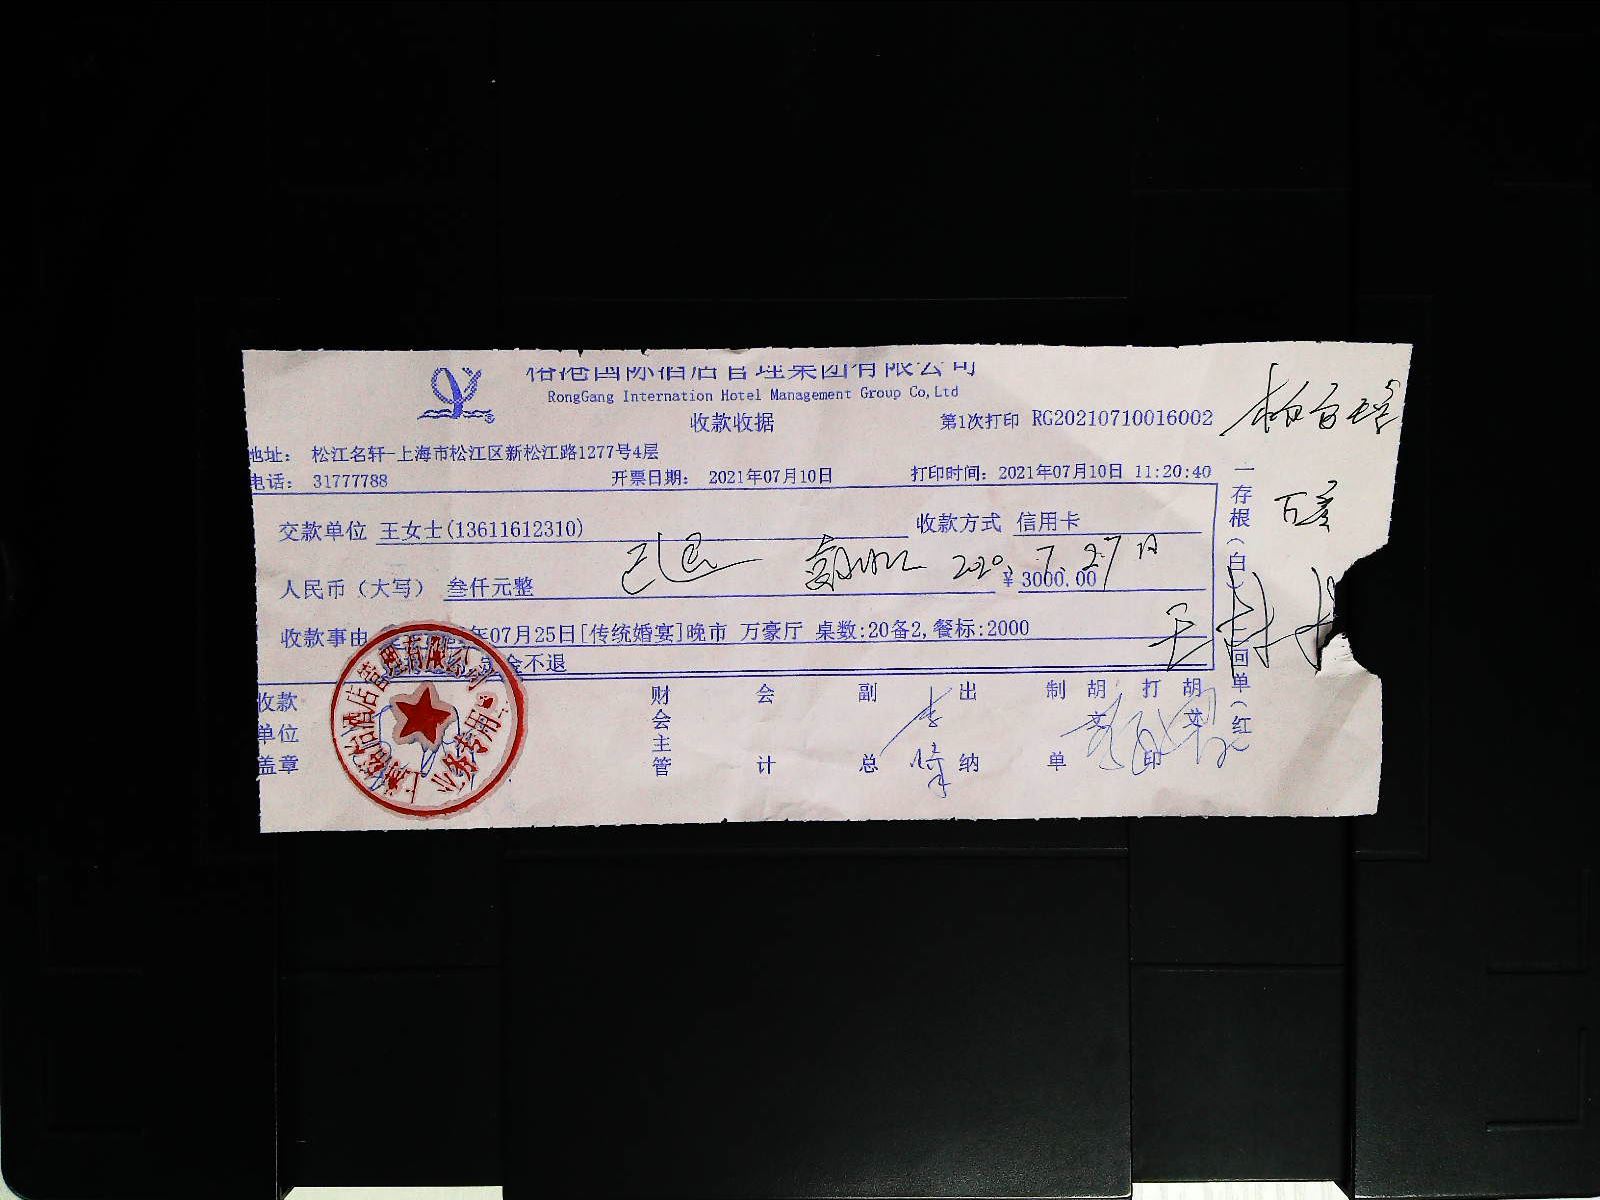 裕港国际酒店管理集团有限公司
RongGang Internation Hotel Management Group Co,Ltd
收款收据 第1次打印 RG20210710016002
地址： 松江名轩-上海市松江区新松江路1277号4层
电话： 31777788 开票日期： 2021年07月10日 打印时间：2021年07月10日 11:20:40
交款单位 王女士(13611612310) 收款方式 信用卡
已退 2020.7.27日
人民币（大写） 叁仟元整 ￥3000.00
收款事由 年07月25日[传统婚宴]晚市 万豪厅 桌数:20备2,餐标:2000
定金不退
收款单位盖章 财会主管 会计 副总 出纳 制单 胡 打印 胡
一存根（白） 回单（红）
业务专用